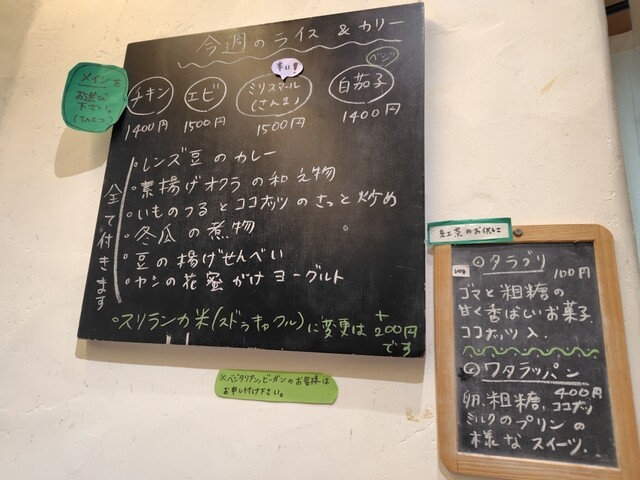 今週のライス & カリー
メインを
お選び
下さい。
(ひとつ)
チキン
1400円
エビ
1500円
辛い!!
ミリスマール
(さんま)
1500円
ベジ
白茄子
1400円
全て付きます
・レンズ豆のカレー
・素揚げオクラの和え物
・いものつるとココナッツのさっと炒め
・冬瓜の煮物
・豆の揚げせんべい
・ヤシの花蜜がけヨーグルト
・スリランカ米(スドゥキャクル)に変更は+200円です
※ベジタリアン、ビーガンのお客様は
お申し付け下さい。
紅茶のお供に
①タラグリ
100円
ゴマと粗糖の
甘く香ばしいお菓子.
ココナッツ入.
②ワタラッパン
400円
卵.粗糖.ココナッツ
ミルクのプリンの
様なスイーツ.